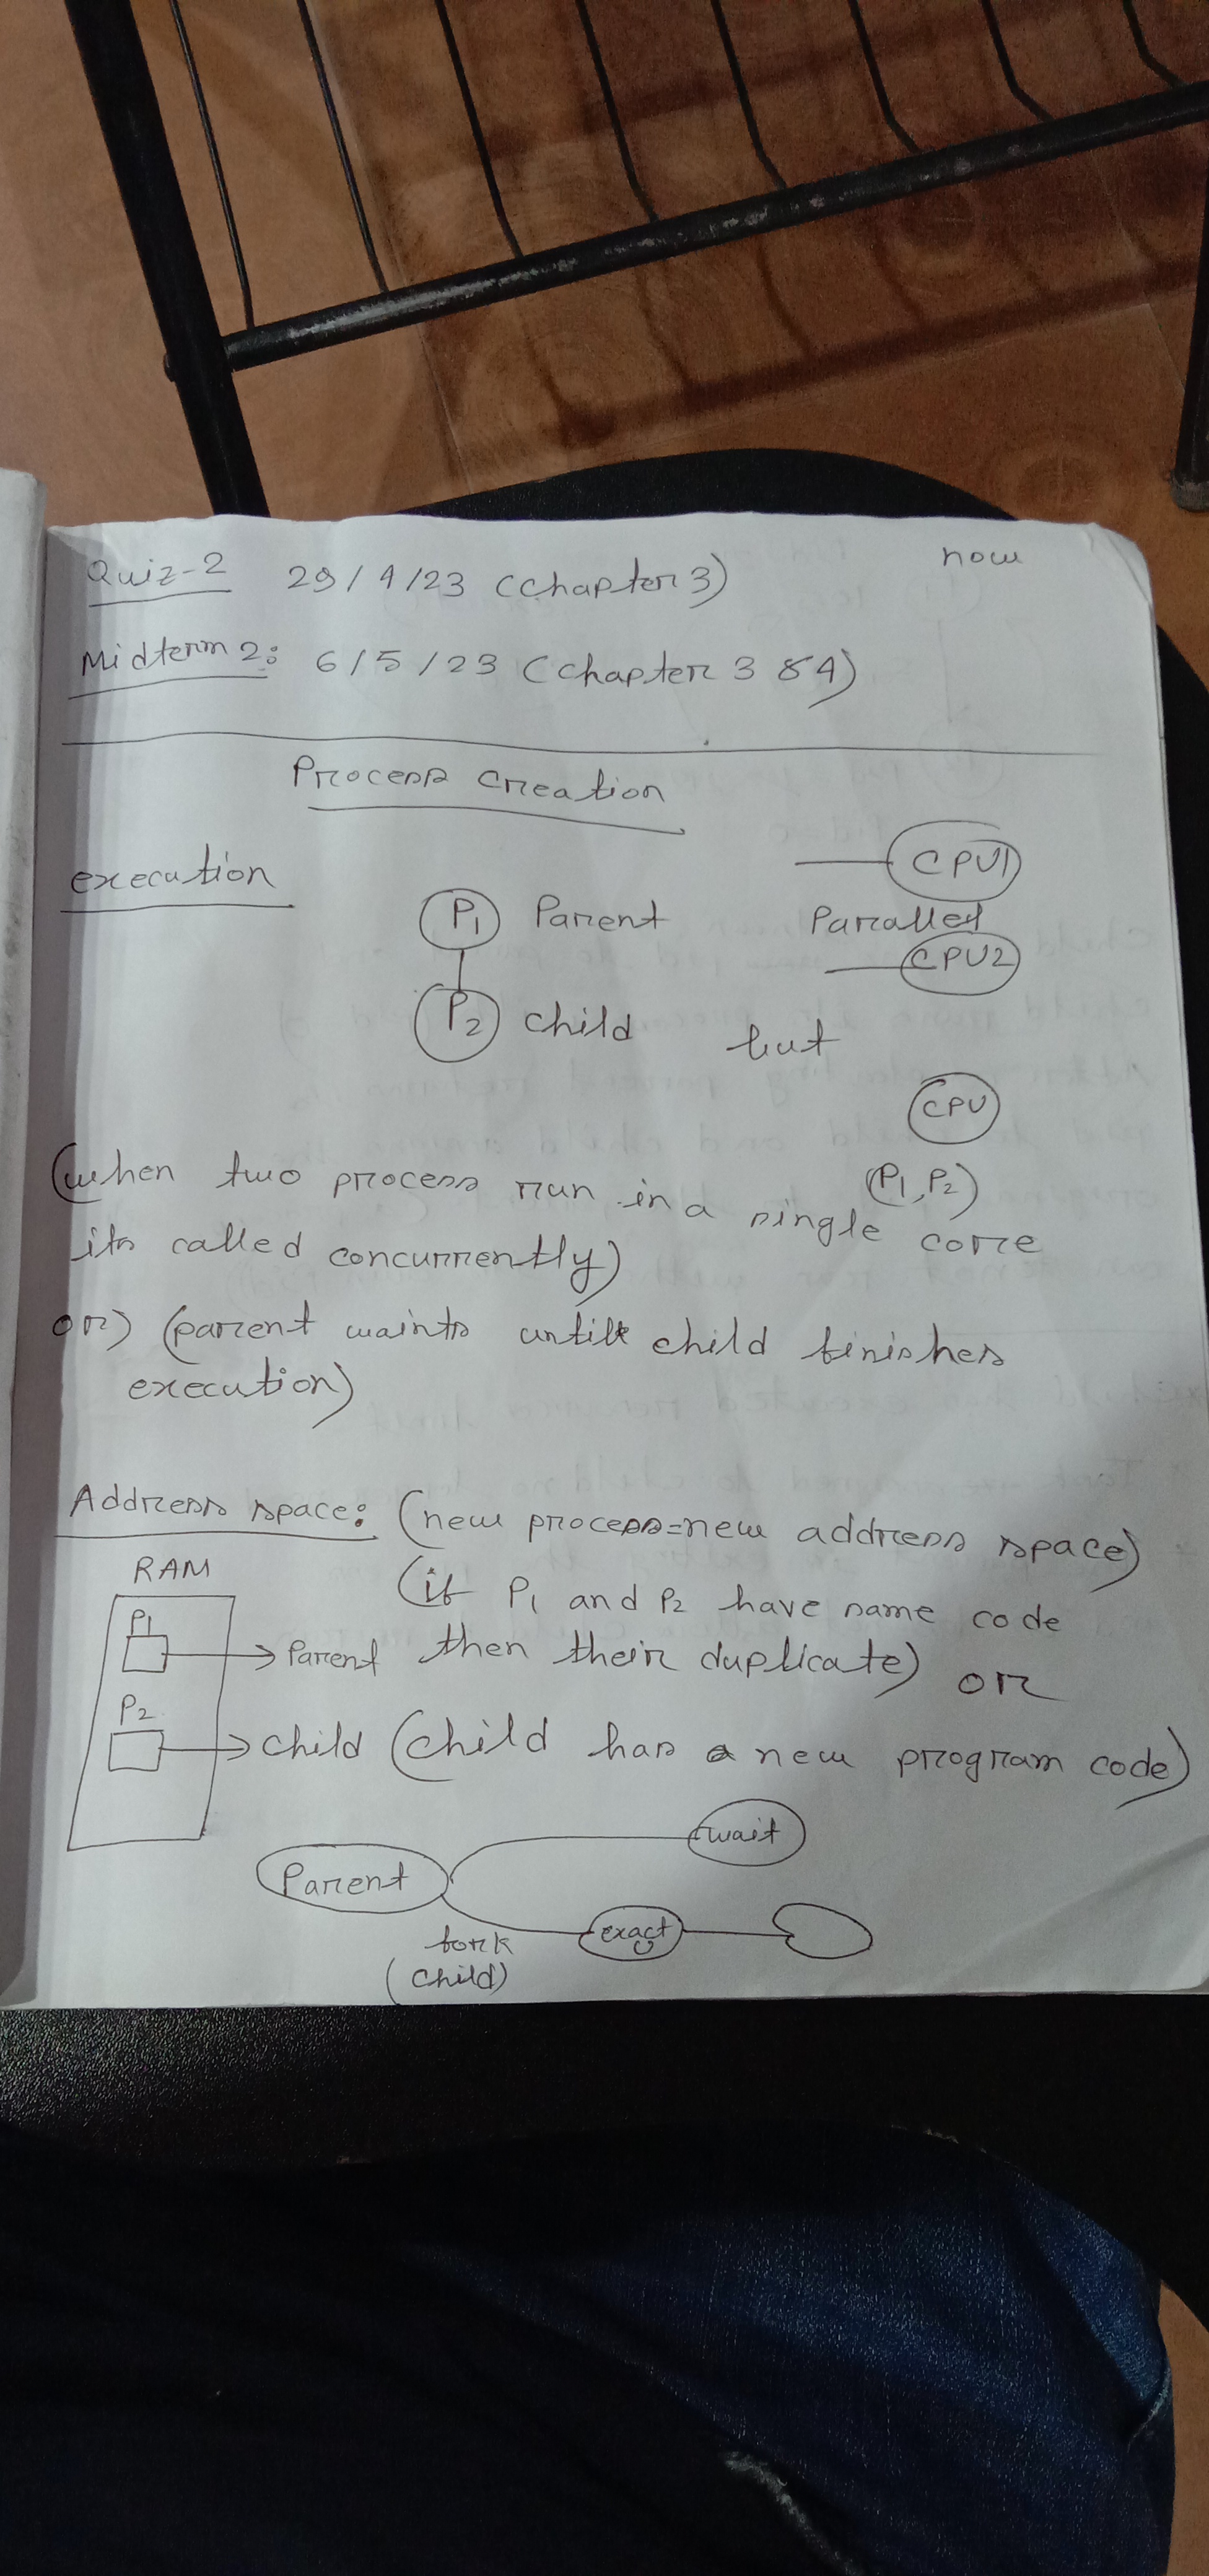 now
Quiz-2 29/4/23 (Chapter 3)
Midterm 2: 6/5/23 (Chapter 3 & 4)
Process Creation
execution
CPU1
P1 Parent Paralled
CPU2
P2 child but
CPU
(P1, P2)
(when two process run in a single core
its called concurrently)
or) (parent waints untill child finishes
execution)
Address space: (new process=new address space)
RAM
(if P1 and P2 have same code
P1
Parent then their duplicate) or
P2
child (child has a new program code)
wait
Parent
exact
fork
(child)